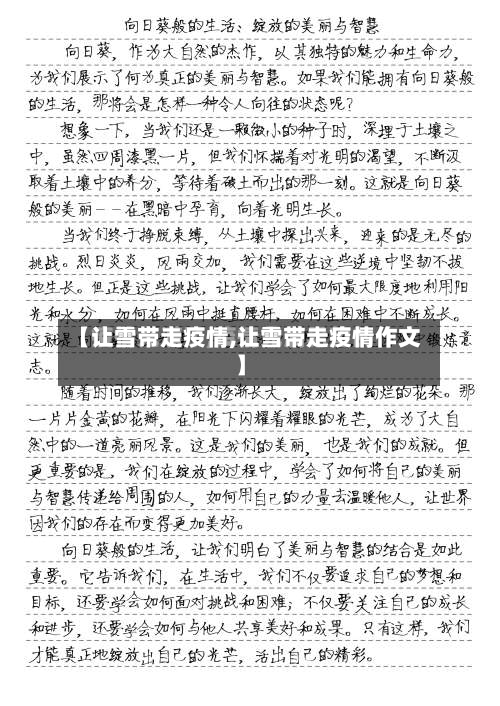 向日葵般的生活：绽放的美丽与智慧
向日葵，作为大自然的杰作，以其独特的魅力和生命力，
为我们展示了何为真正的美丽与智慧。如果我们能拥有向日葵般
的生活，那将会是怎样一种令人向往的状态呢？
想象一下，当我们还是一颗微小的种子时，深埋于土壤之
中，虽然四周漆黑一片，但我们怀揣着对光明的渴望，不断汲
取着土壤中的养分，等待着破土而出的那一刻。这就是向日葵
般的美丽——在黑暗中孕育，向着光明生长。
当我们终于挣脱束缚，从土壤中探出头来，迎来的是无尽的
挑战。烈日炎炎，风雨交加，我们需要在这些逆境中坚韧不拔
地生长。但正是这些挑战，让我们学会了如何最大限度地利用阳
光和水分，如何在风雨中挺直腰杆，如何在困难中不断成长。
这就是
【让雪带走疫情,让雪带走疫情作文
】
锻炼意
志。
随着时间的推移，我们逐渐长大，绽放出了绚烂的花朵。那
一片片金黄的花瓣，在阳光下闪耀着耀眼的光芒，成为了大自
然中的一道亮丽风景。这是我们的美丽，也是我们的成就。但
更重要的是，我们在绽放的过程中，学会了如何将自己的美丽
与智慧传递给周围的人，如何用自己的力量去温暖他人，让世界
因我们的存在而变得更加美好。
向日葵般的生活，让我们明白了美丽与智慧的结合是如此
重要。它告诉我们，在生活中，我们不仅要追求自己的梦想和
目标，还要学会如何面对挑战和困难；不仅要关注自己的成长
和进步，还要学会如何与他人共享美好和成果。只有这样，我们
才能真正地绽放出自己的光芒，活出自己的精彩。